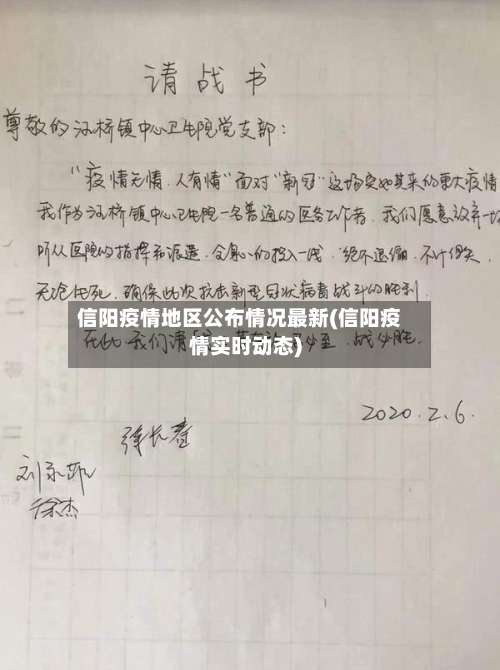 请战书
尊敬的汪桥镇中心卫生院党支部：
"疫情无情，人有情"面对"新冠"这场突如其来的重大疫情
我作为汪桥镇中心卫生院一名普通的医务工作者，我们愿意放弃一切
听从医院的指挥和派遣，全身心的投入一线，绝不退缩，不计得失，
无论生死，确保此次抗击新型冠状病毒战斗的胜利
信阳疫情地区公布情况最新(信阳疫
情实时动态)
在此我们请 必至，战必胜。
2020.2.6.
徐长春
徐杰